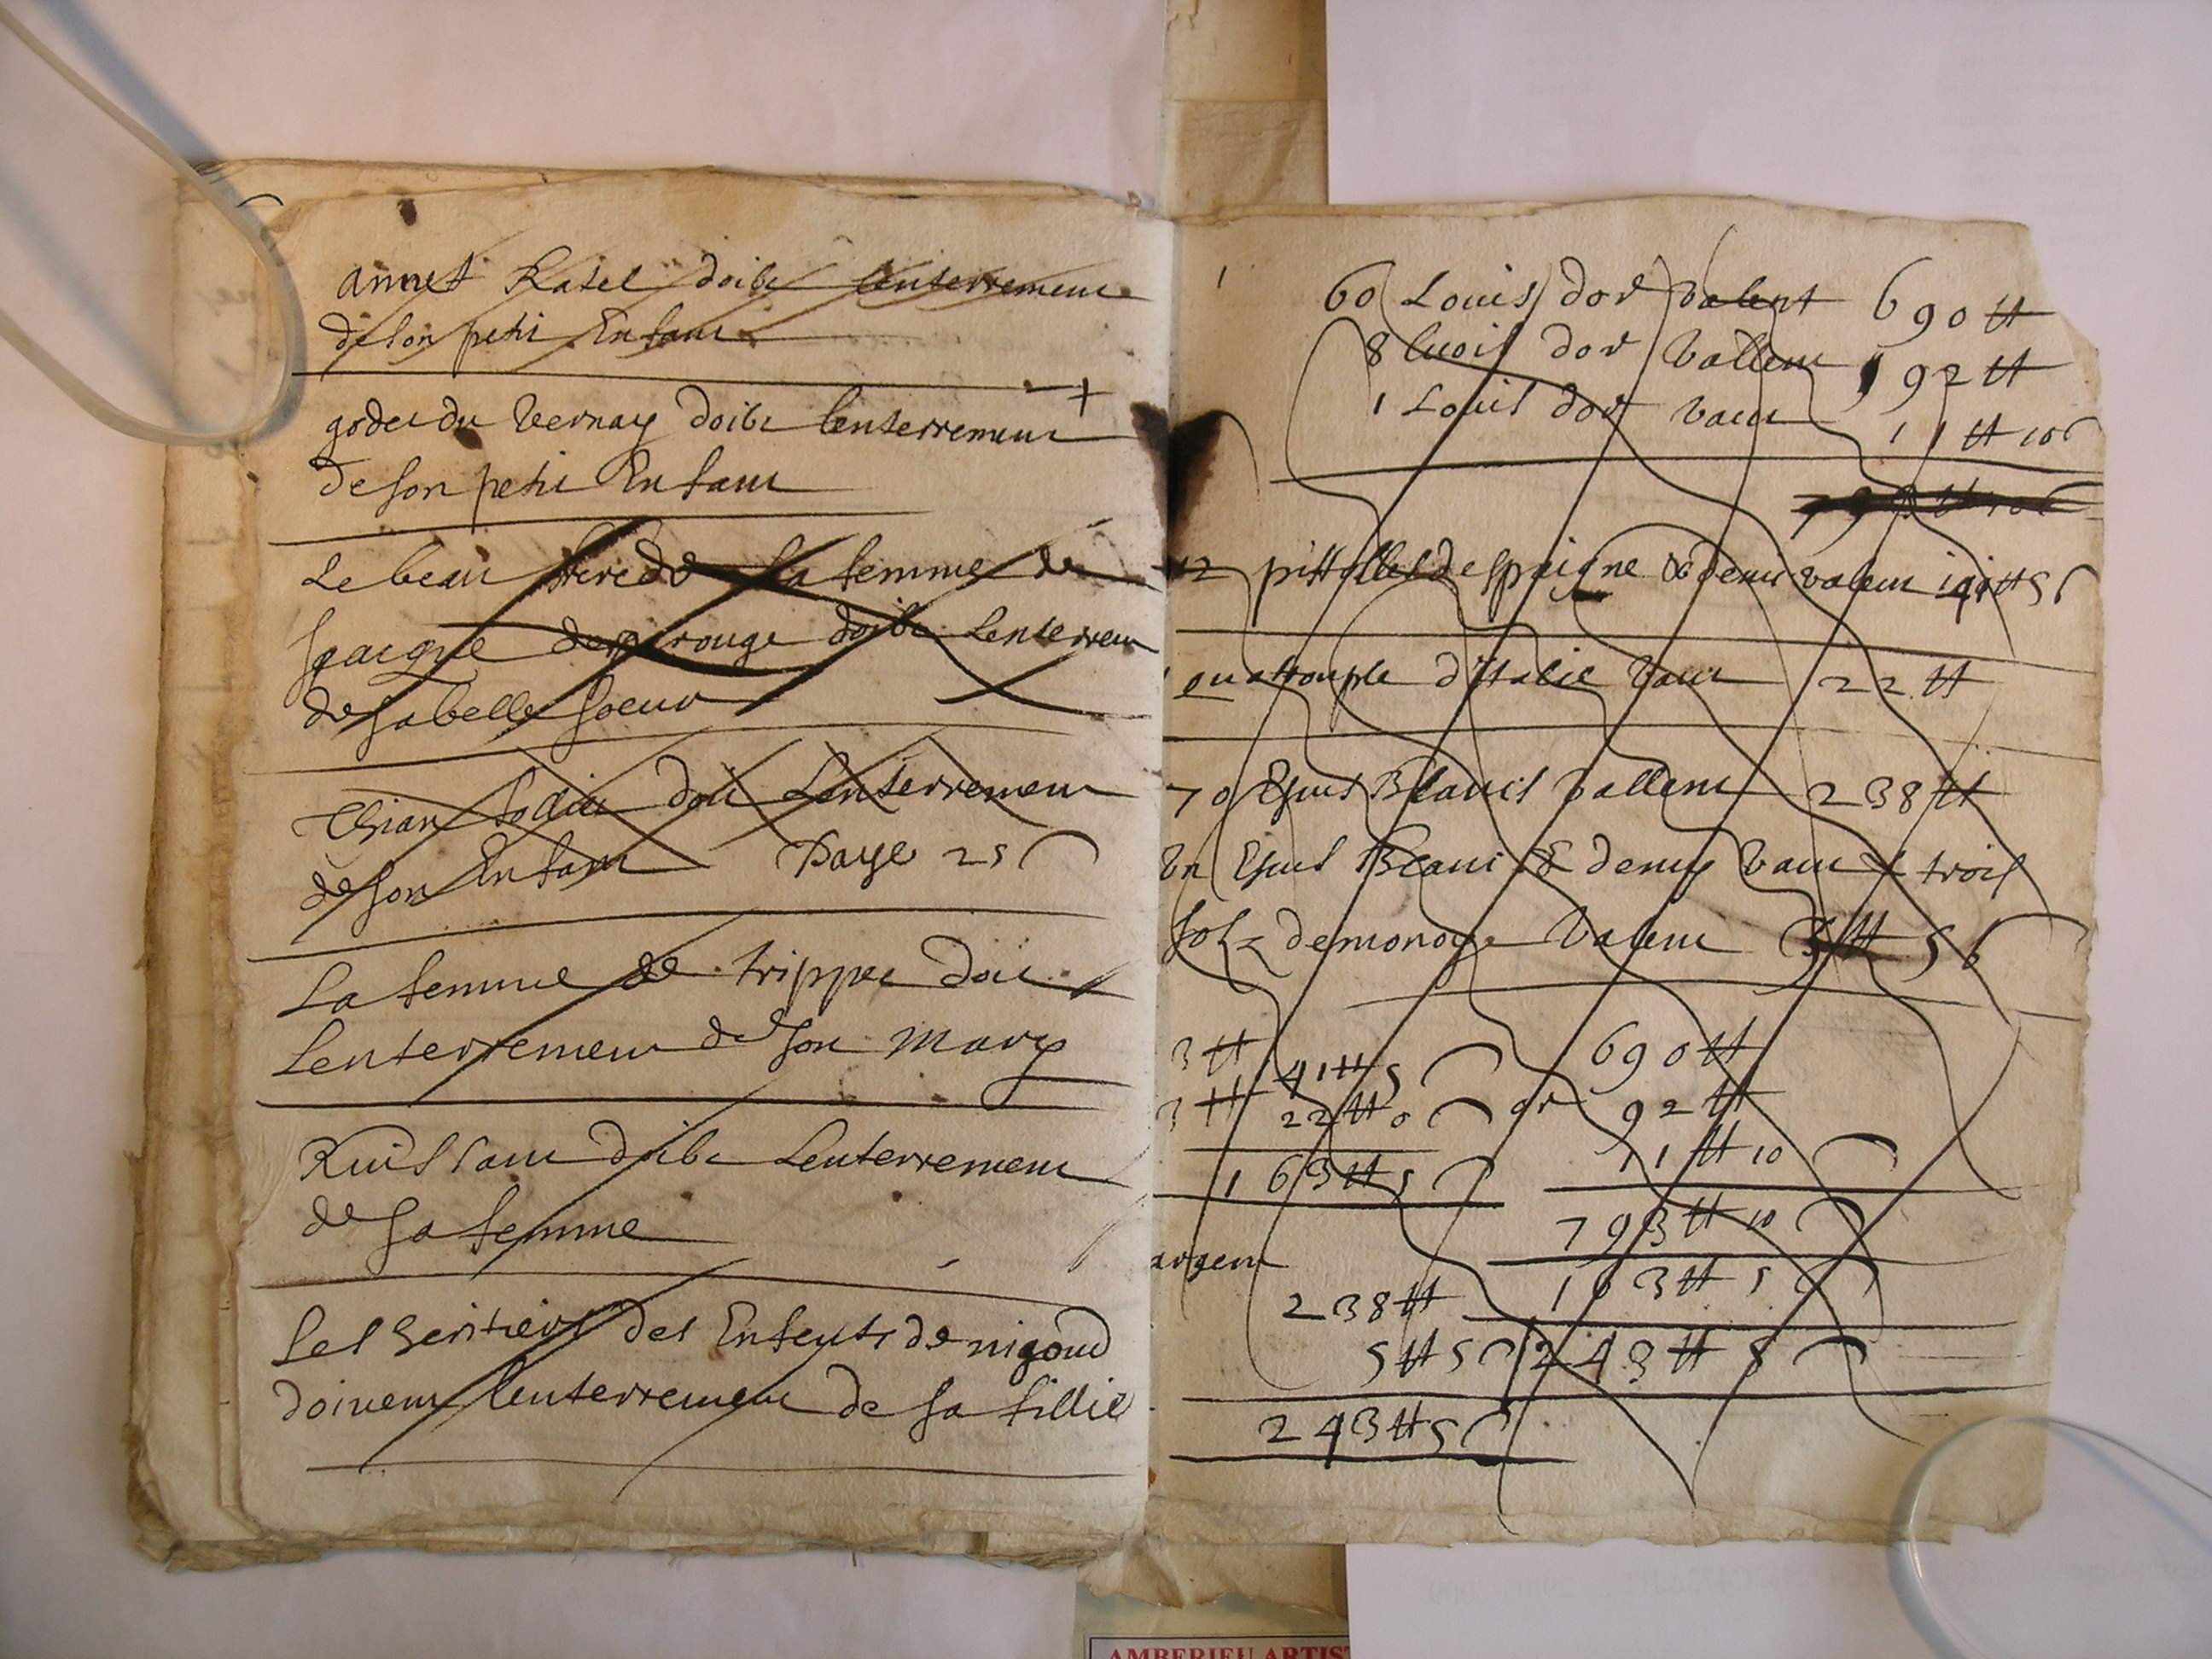 annet Ratel doibt lenterrement
de son petit Enfant
godet du Vernay doibt lenterrement
de son petit Enfant
Le beau frere de la femme de
rouge doibt Lenterrem
de sa belle soeur
doit Lenterrement
de son Enfant Paye 25
La femme de trippet doit
Lenterrement de son mary
doibt Lenterrement
de sa femme
Les heritiers des Enfents de nigoud
doivent lenterrement de sa fillie
60 Louis dor valent 690 tt
8 Luois dor vallent 92 tt
1 Louis dor vaut 11 tt 10 s
12 pistolles despaigne & demi valent tt 5 s
1 quattouple d'Italie vaut 22 tt
70 Escus Blancs vallent 238 tt
Un Escus Blanc & demy vaut & trois
solz de monoye valent 5 tt 5 s
3 tt 41 tt 5 690 tt
3 tt 22 tt 0 or 92 tt
11 tt 10
1 63 tt 5
793 tt 10
argent
163 tt 5
238 tt
5 tt 5 243 tt 5
243 tt 5
AMBERIEU ARTIST